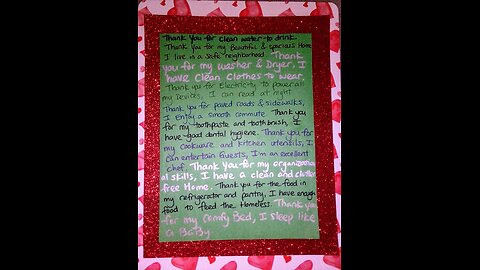 Thank You for Clean water to drink.
Thank You for my Beautiful & spacious Home
I live in a safe neighborhood Thank
you for my washer & Dryer, I
have Clean Clothes to wear.
Thank you for Electricity to power all
my Devices, I can read at night
Thank you for paved roads & sidewalks,
I Enjoy a smooth commute Thank you
for my toothpaste and toothbrush, I
have good dental hygiene. Thank you for
my cookware and kitchen utensils, I
can entertain Guests, I'm an excellent
chef. Thank You for my organization
al skills, I have a clean and clutter
free Home. Thank you for the food in
my refrigerator and pantry, I have enough
food to feed the Homeless. Thank you
for my Comfy Bed, I sleep like
a BaBy.